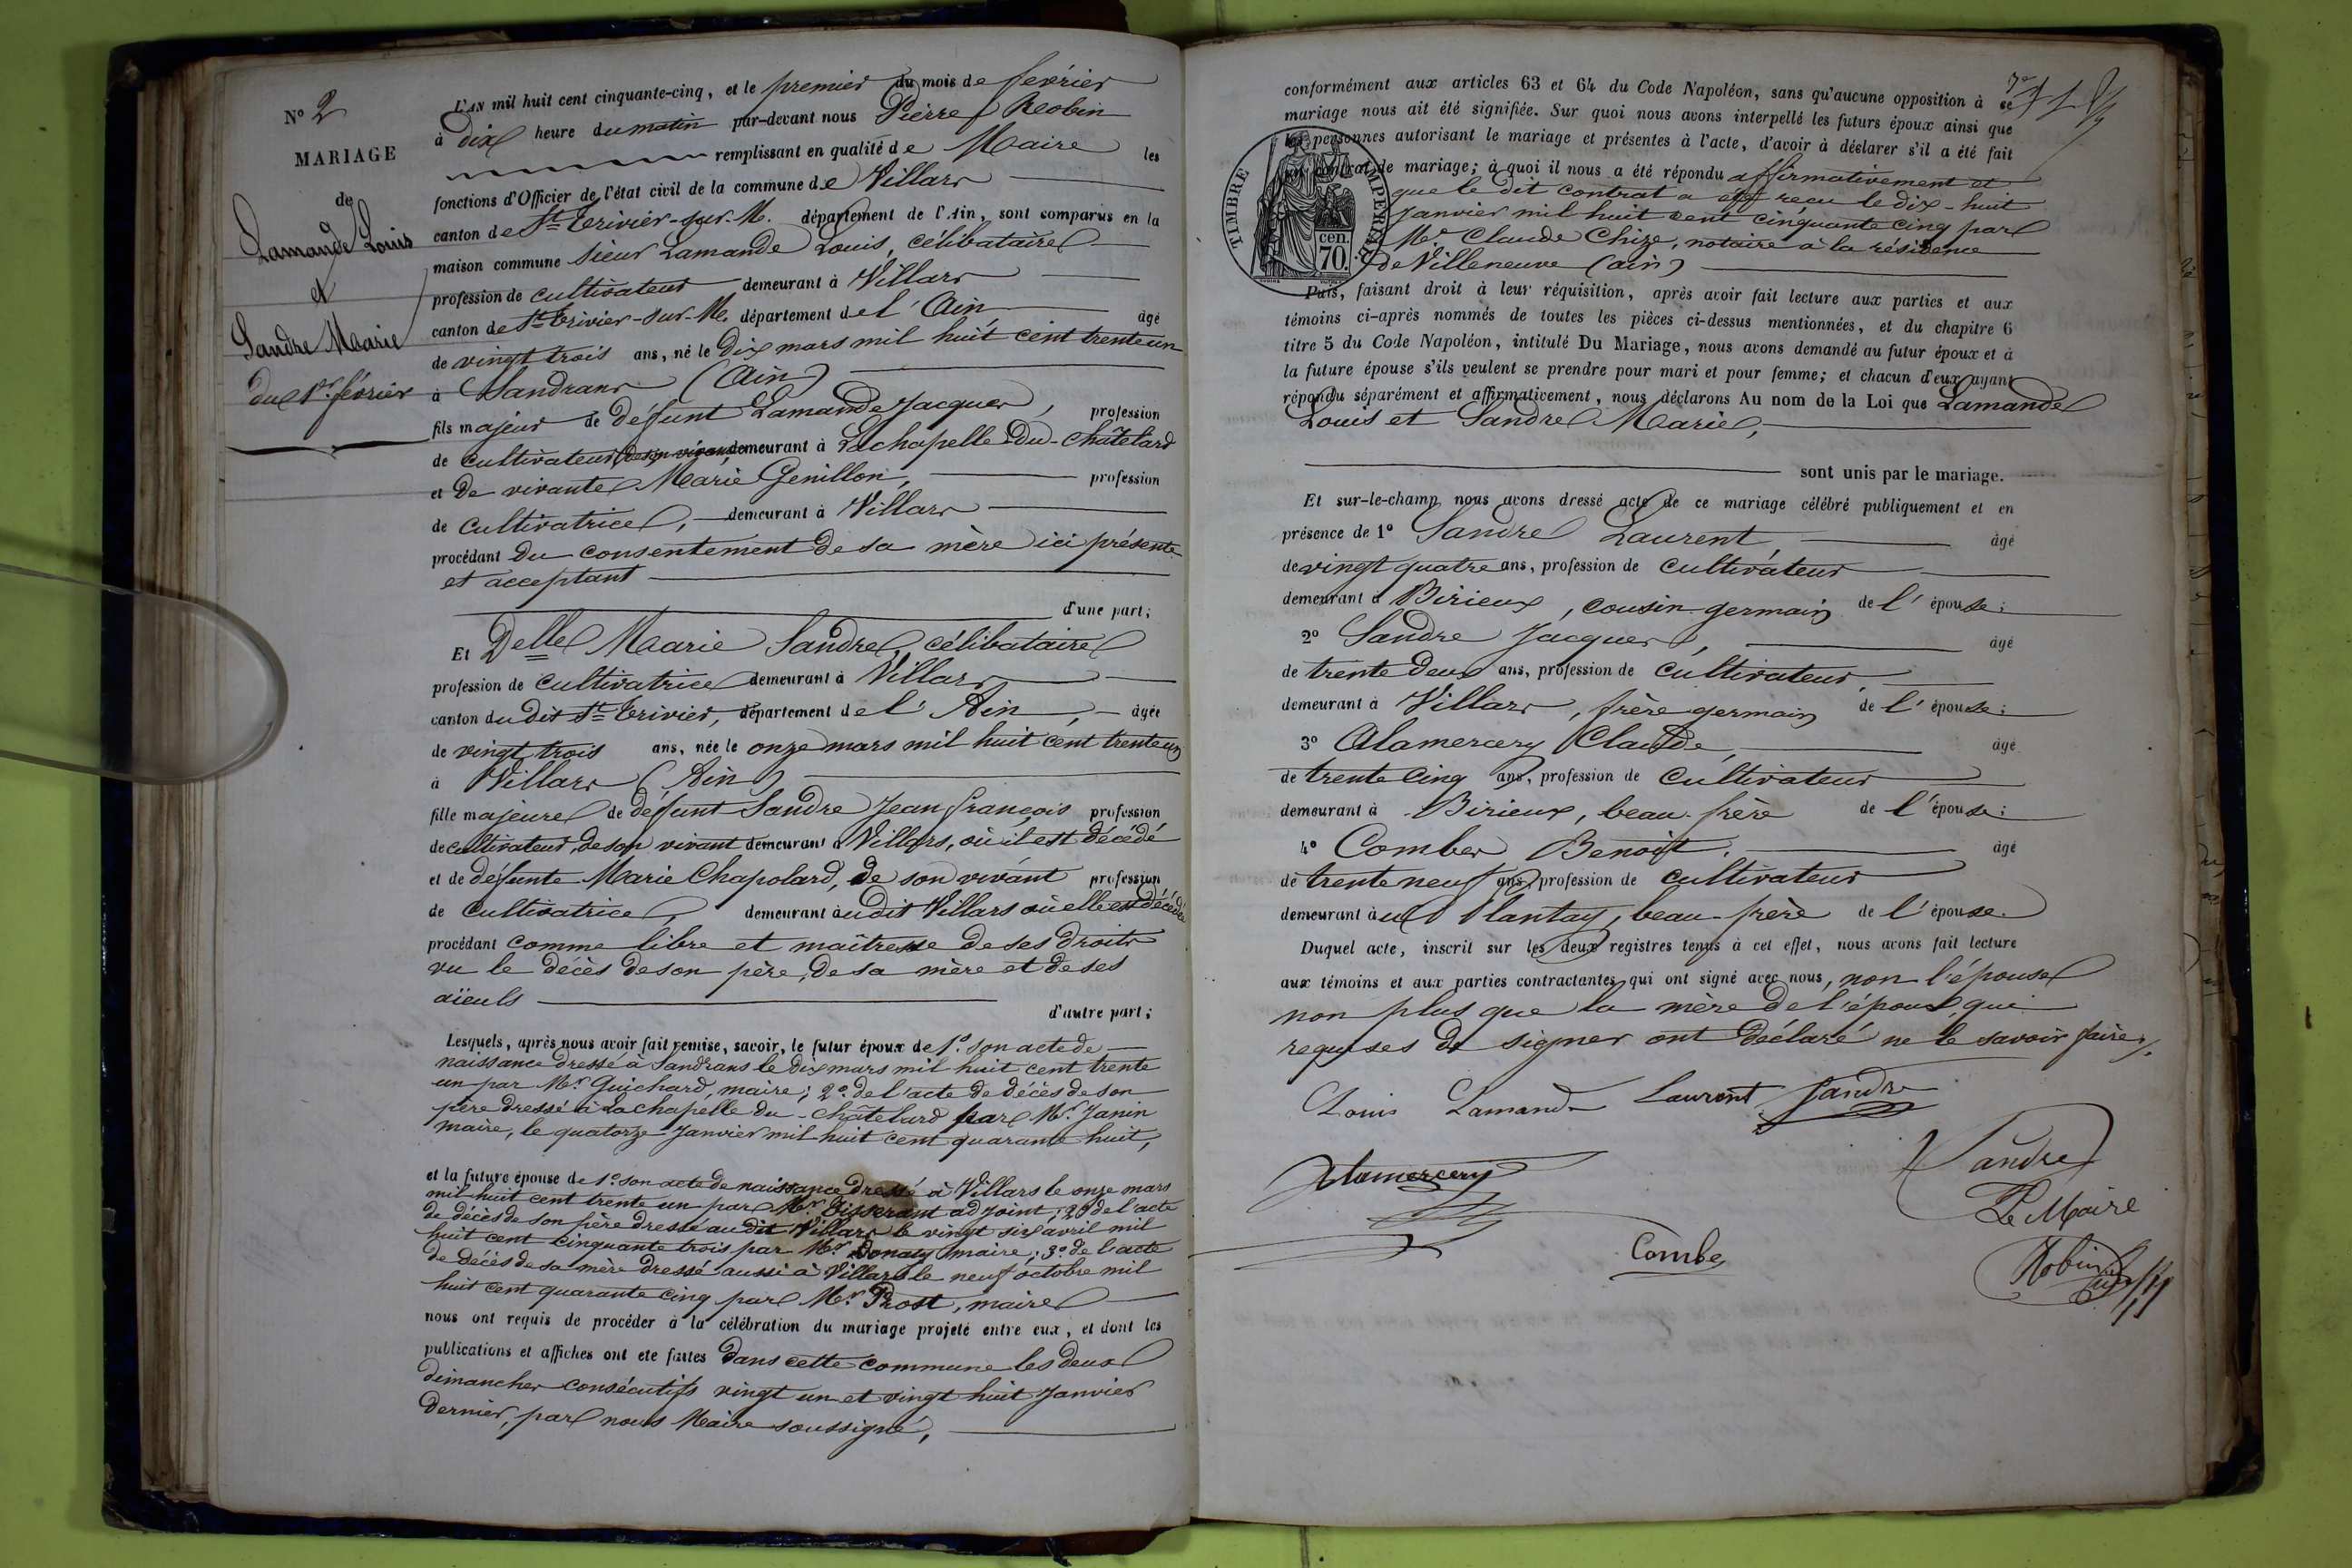 N° 2
MARIAGE
de
Lamande Louis
et
Sandre Marie
du 1er février
L'AN mil huit cent cinquante-cinq, et le premier du mois de février
à dix heure du matin par-devant nous Pierre Robin
remplissant en qualité de Maire les
fonctions d'Officier de l'état civil de la commune de Villars
canton de St Trivier-sur-M. département de l'Ain, sont comparus en la
maison commune sieur Lamande Louis, célibataire
profession de cultivateur demeurant à Villars
canton de St Trivier-sur-M. département de l'Ain, âgé
de vingt trois ans, né le dix mars mil huit cent trente un
à Sandrans (Ain)
fils majeur de défunt Lamande Jacques, profession
de cultivateur, de son vivant demeurant à Lachapelle-du-Châtelard
et de vivante Marie Genillon, profession
de cultivatrice, demeurant à Villars
procédant du consentement de sa mère ici présente
et acceptant
d'une part;
Et Delle Marie Sandre, célibataire
profession de cultivatrice demeurant à Villars
canton du dit St Trivier, département de l'Ain, âgée
de vingt trois ans, née le onze mars mil huit cent trente un
à Villars (Ain)
fille majeure de défunt Sandre Jean François profession
de cultivateur, de son vivant demeurant à Villars, où il est décédé
et de défunte Marie Chapolard, de son vivant profession
de cultivatrice, demeurant audit Villars où elle est décédée
procédant comme libre et maîtresse de ses droits
vu le décès de son père, de sa mère et de ses
aïeuls
d'autre part;
Lesquels, après nous avoir fait remise, savoir, le futur époux de 1° son acte de
naissance dressé à Sandrans le dix mars mil huit cent trente
un par Mr Guichard, maire; 2° de l'acte de décès de son
père dressé à Lachapelle du-Châtelard par Mr Janin
maire, le quatorze Janvier mil huit cent quarante huit,
et la future épouse de 1° son acte de naissance dressé à Villars le onze mars
mil huit cent trente un par Mr Tisserant adjoint; 2° de l'acte
de décès de son père dressé au dit Villars le vingt six avril mil
huit cent cinquante trois par Mr Donat maire; 3° de l'acte
de décès de sa mère dressé aussi à Villars le neuf octobre mil
huit cent quarante cinq par Mr Prost, maire
nous ont requis de procéder à la célébration du mariage projeté entre eux, et dont les
publications et affiches ont été faites dans cette commune les deux
dimanches consécutifs vingt un et vingt huit Janvier
dernier, par nous Maire soussigné,
conformément aux articles 63 et 64 du Code Napoléon, sans qu'aucune opposition à ce
mariage nous ait été signifiée. Sur quoi nous avons interpellé les futurs époux ainsi que
les personnes autorisant le mariage et présentes à l'acte, d'avoir à déclarer s'il a été fait
un contrat de mariage; à quoi il nous a été répondu affirmativement et
que le dit contrat a été reçu le dix-huit
Janvier mil huit cent cinquante cinq par
Me Claude Chize, notaire à la résidence
de Villeneuve (ain)
TIMBRE IMPERIAL
cen.
70.
Puis, faisant droit à leur réquisition, après avoir fait lecture aux parties et aux
témoins ci-après nommés de toutes les pièces ci-dessus mentionnées, et du chapitre 6
titre 5 du Code Napoléon, intitulé Du Mariage, nous avons demandé au futur époux et à
la future épouse s'ils veulent se prendre pour mari et pour femme; et chacun d'eux ayant
répondu séparément et affirmativement, nous déclarons Au nom de la Loi que Lamande
Louis et Sandre Marie,
sont unis par le mariage.
Et sur-le-champ nous avons dressé acte de ce mariage célébré publiquement et en
présence de 1° Sandre Laurent, âgé
de vingt quatre ans, profession de cultivateur
demeurant à Birieux, cousin-germain de l'épouse;
2° Sandre Jacques, âgé
de trente deux ans, profession de cultivateur
demeurant à Villars, frère germain de l'épouse;
3° Alamercery Claude, âgé
de trente cinq ans, profession de cultivateur
demeurant à Birieux, beau-frère de l'épouse;
4° Combes Benoit, âgé
de trente neuf ans, profession de cultivateur
demeurant au Plantay, beau-frère de l'épouse.
Duquel acte, inscrit sur les deux registres tenus à cet effet, nous avons fait lecture
aux témoins et aux parties contractantes qui ont signé avec nous, non l'épouse
non plus que la mère de l'époux, qui
requises de signer ont déclaré ne le savoir faire./.
Louis Lamande Laurent Sandre
Alamercery
Sandre
Le Maire
Combe
Robin